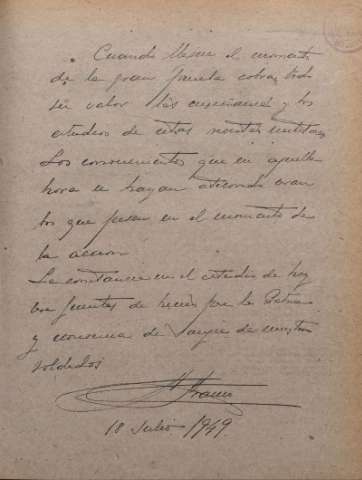 Cuando llegue el momento
de la gran prueba cobran todo
su valor las enseñanzas y los
estudios de estas revistas militares
Los conocimientos que en aquella
hora se hayan atesorado seran
los que pesen en el momento de
la accion
La constancia en el estudio de hoy
son fuentes de bienes por la Patria
y economia de sangre de nuestros
soldados
F Franco
18 Julio 1949.